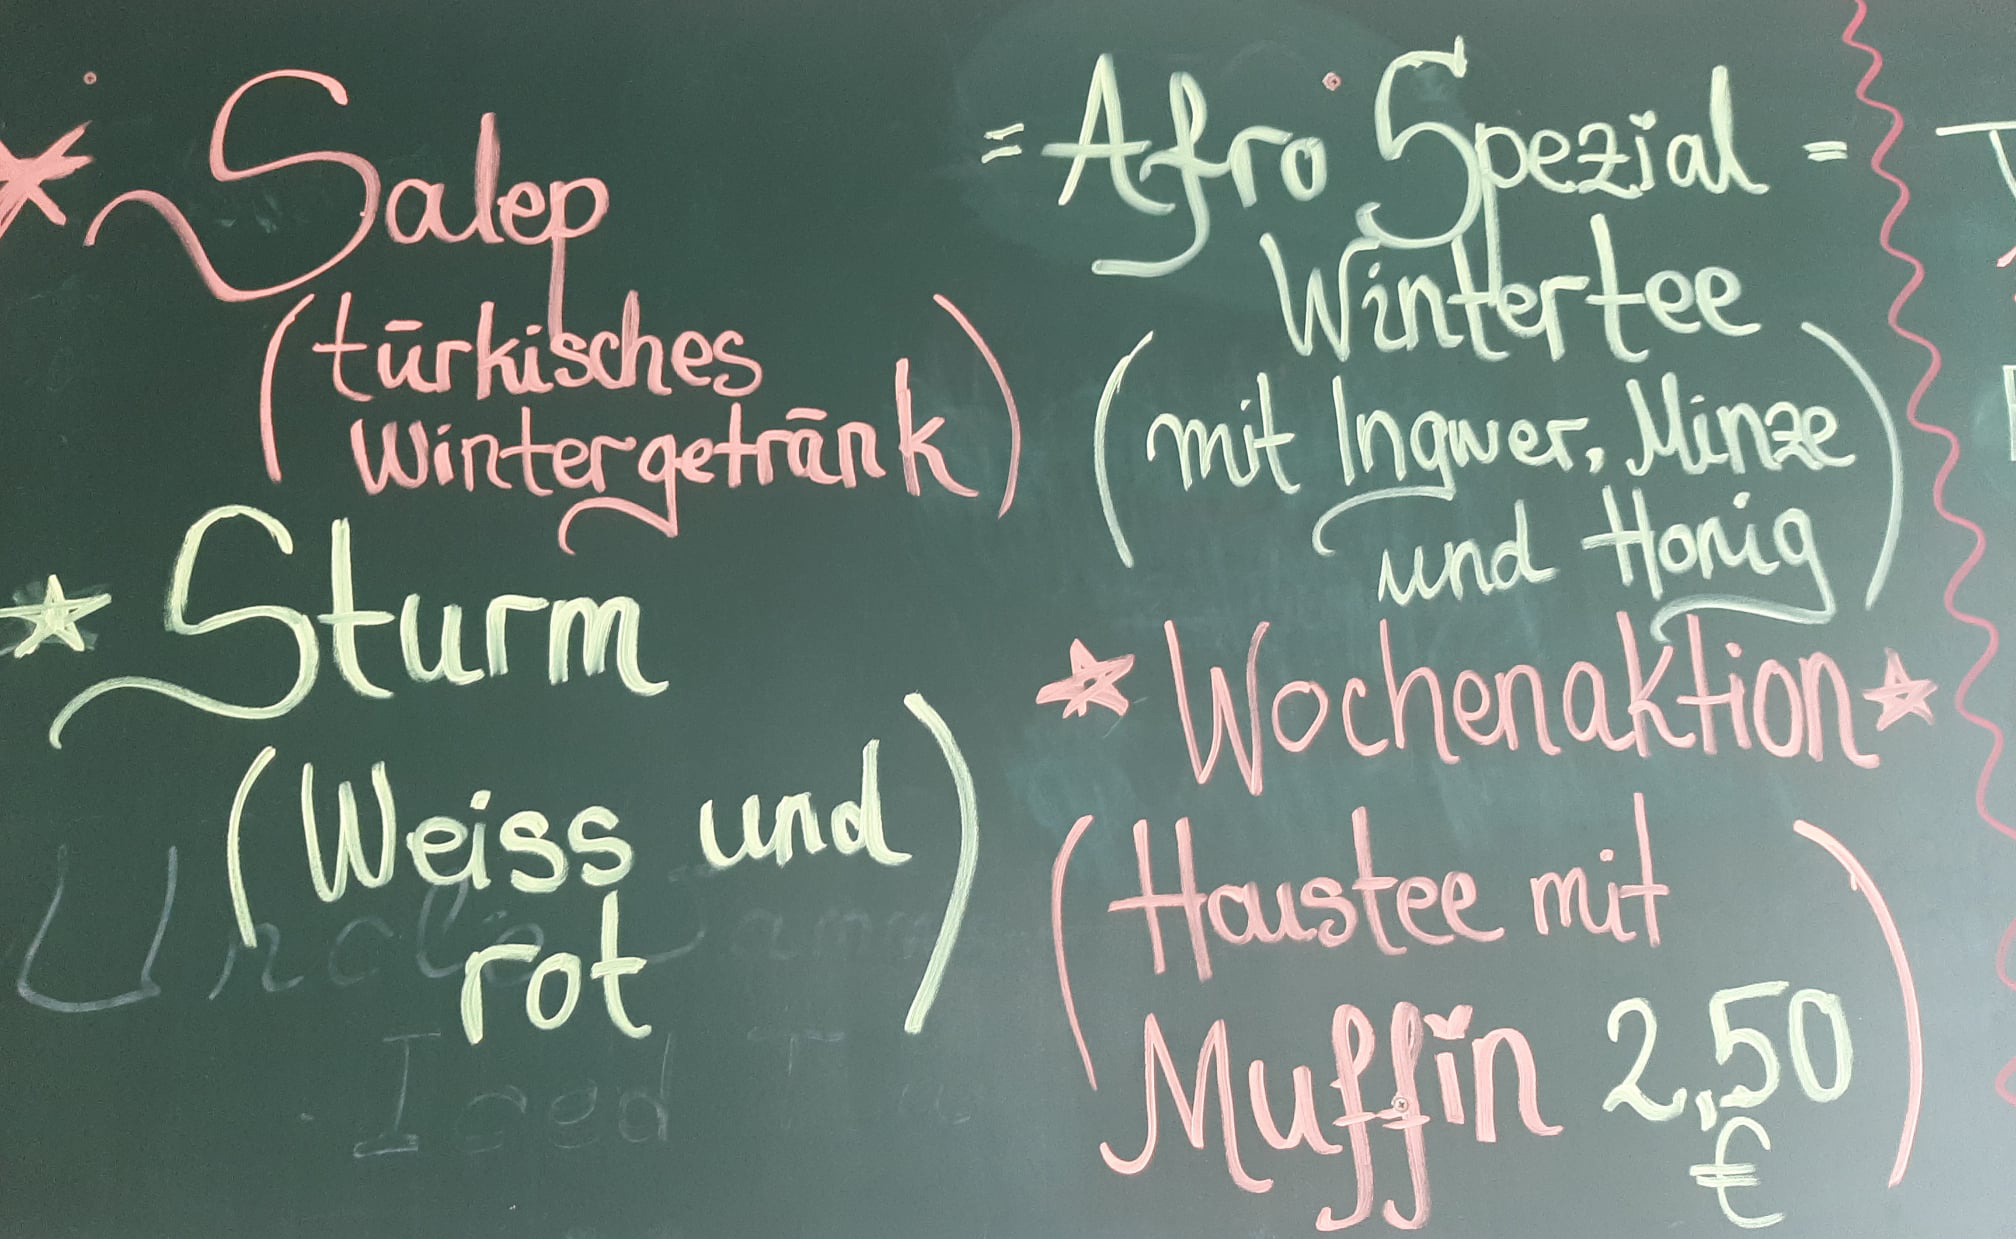 Salep
(türkisches
Wintergetränk)
Sturm
(Weiss und
rot)
= Afro Spezial =
Wintertee
(mit Ingwer, Minze
und Honig)
Wochenaktion
(Haustee mit
Muffin 2,50
€)